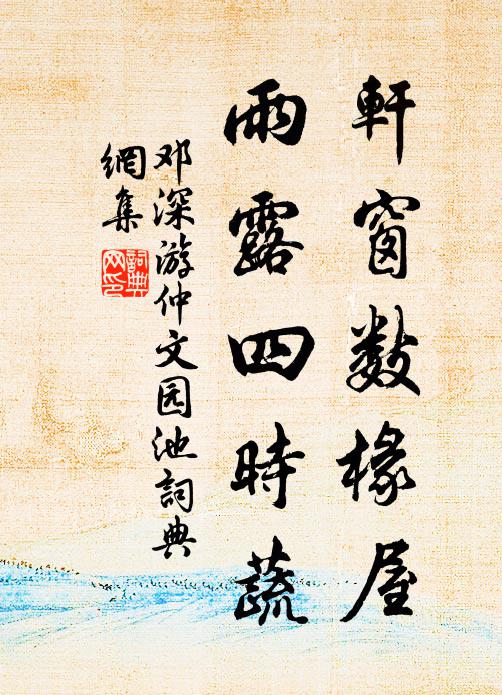 軒窗數椽屋
雨露四時蔬
邓深游仲文园池詞典
網集
詞典网印